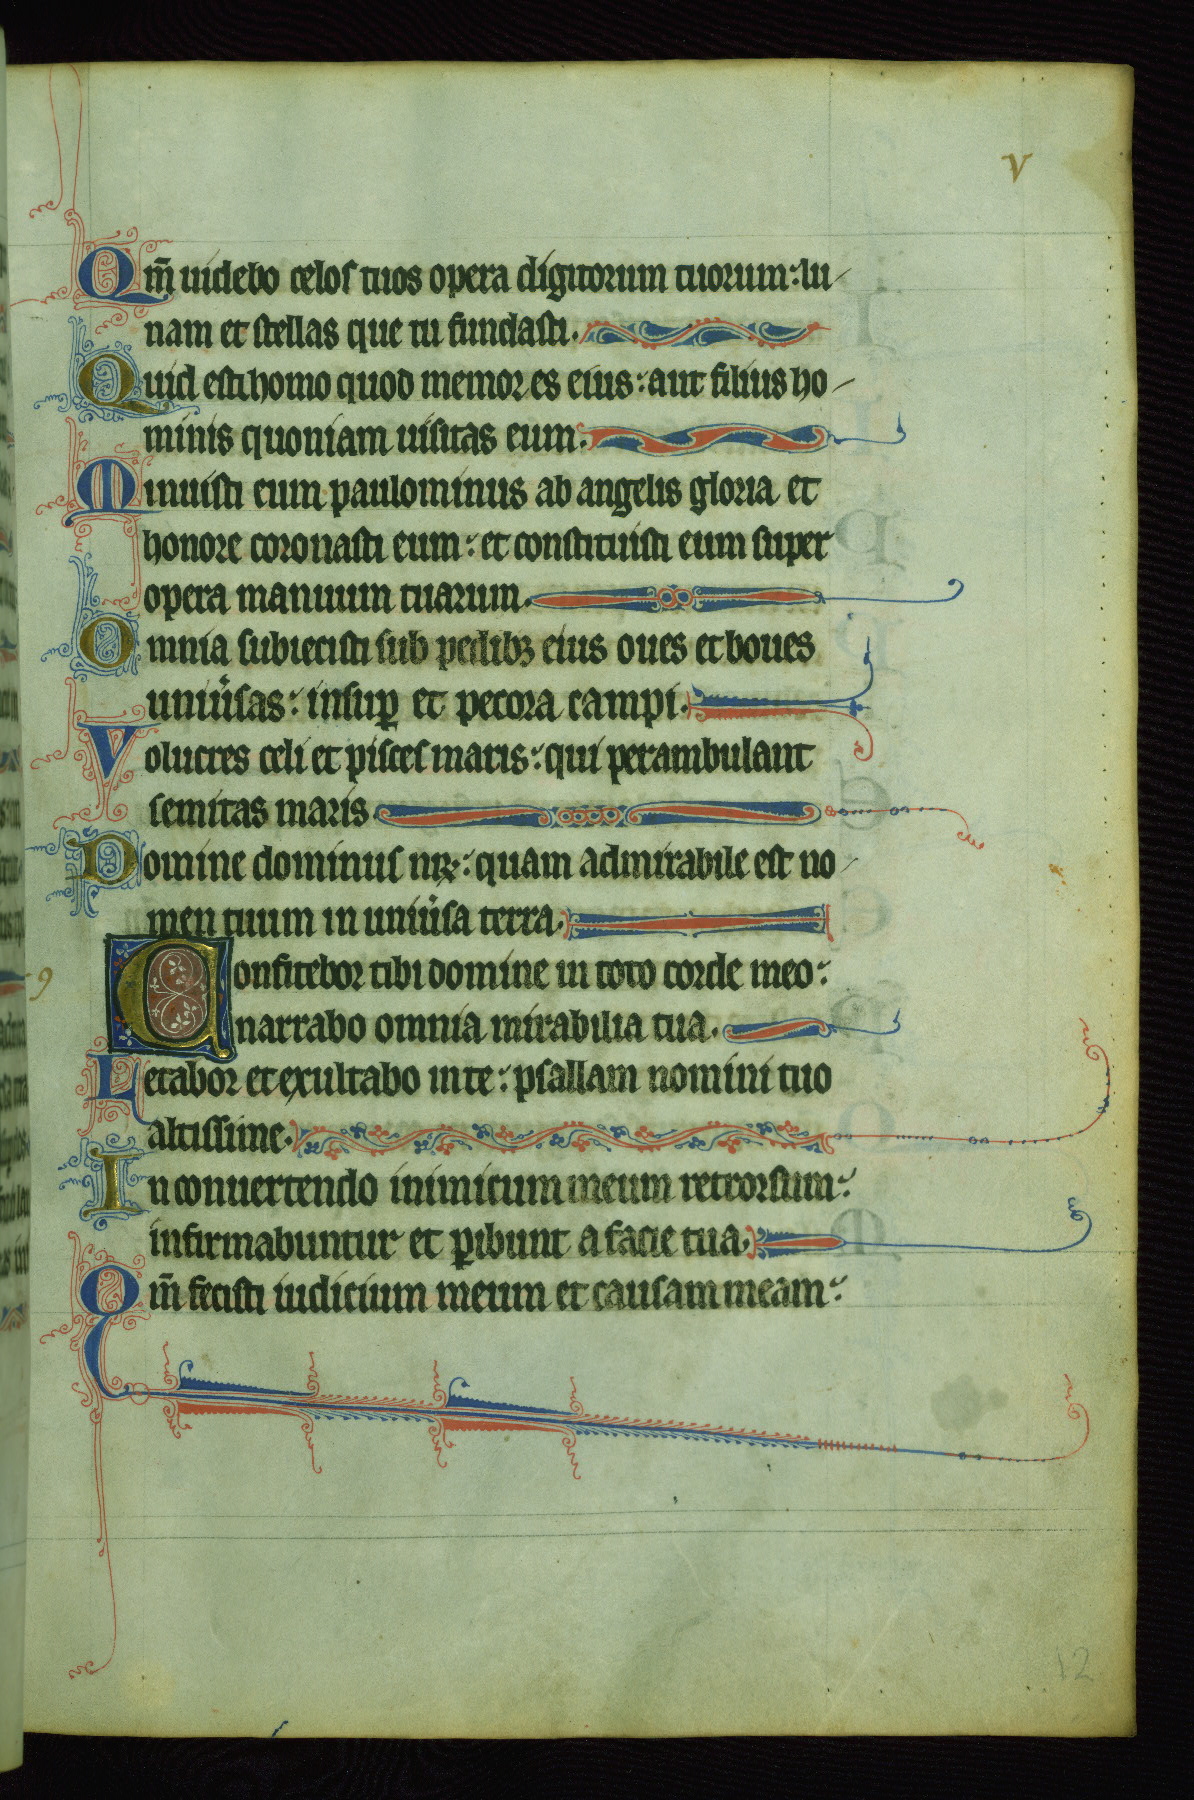 v
Qm̄ uidebo celos tuos opera digitorum tuorum: lu
nam et stellas que tu fundasti.
Quid est homo quod memor es eius: aut filius ho
minis quoniam uisitas eum.
Minuisti eum paulominus ab angelis gloria et
honore coronasti eum: et constituisti eum super
opera manuum tuarum.
Omnia subiecisti sub pedibꝫ eius oues et boues
uniu̾sas: insuꝑ et pecora campi.
Volucres celi et pisces maris: qui perambulant
semitas maris
Domine dominus nr̄: quam admirabile est no
men tuum in uniu̾sa terra.
9
Confitebor tibi domine in toto corde meo:
narrabo omnia mirabilia tua.
Letabor et exultabo in te: psallam nomini tuo
altissime.
In conuertendo inimicum meum retrorsum:
infirmabuntur et ꝑibunt a facie tua.
Qm̄ fecisti iudicium meum et causam meam:
12